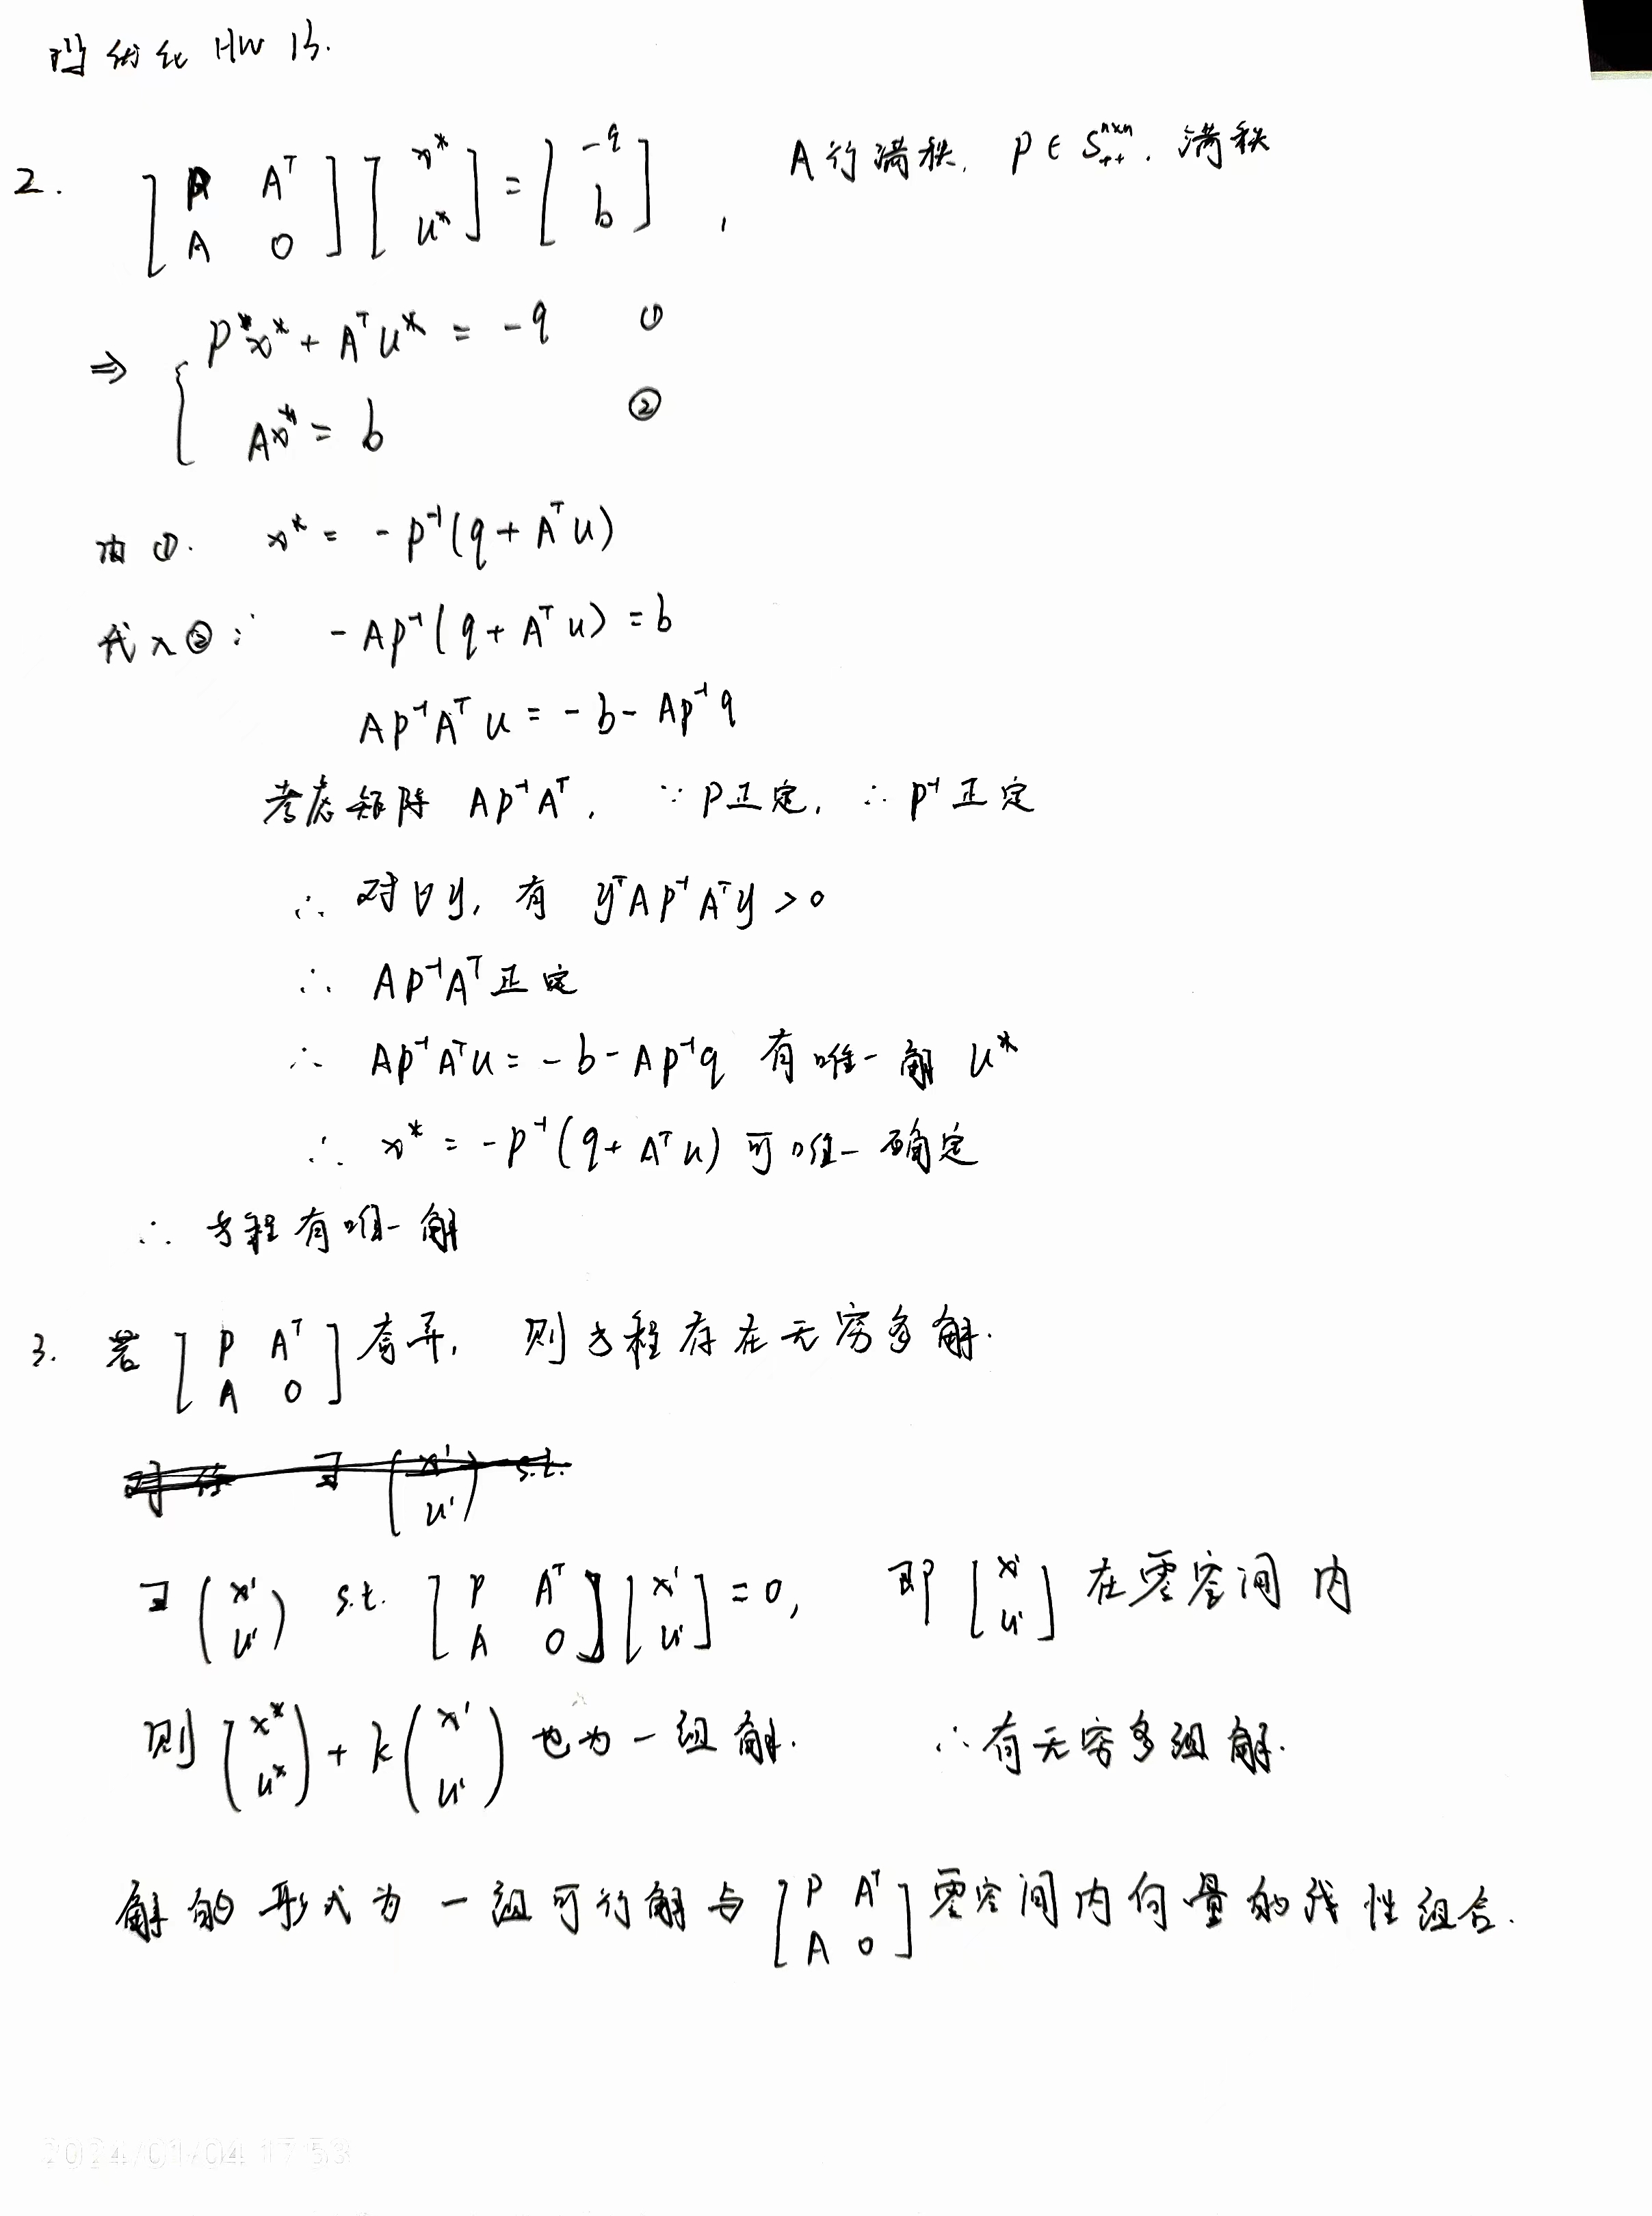 凸优化 HW 13.
2. [P A^T; A 0] [x^*; u^*] = [-q; b], A行满秩, P ∈ S_{++}^{n×n}, 满秩
⇒ { P x^* + A^T u^* = -q ①
A x^* = b ②
由①. x^* = -P^{-1}(q + A^T u)
代入②: -AP^{-1}(q + A^T u) = b
AP^{-1}A^T u = -b - AP^{-1}q
考虑矩阵 AP^{-1}A^T, ∵ P正定, ∴ P^{-1}正定
∴ 对∀y, 有 y^T A P^{-1} A^T y > 0
∴ AP^{-1}A^T 正定
∴ AP^{-1}A^T u = -b - AP^{-1}q 有唯一解 u^*
∴ x^* = -P^{-1}(q + A^T u) 可唯一确定
∴ 方程有唯一解
3. 若 [P A^T; A 0] 奇异, 则方程存在无穷多解.
∃ (x'; u') s.t.
∃ (x'; u') s.t. [P A^T; A 0] [x'; u'] = 0, 即 [x'; u'] 在零空间内
则 (x^*; u^*) + k (x'; u') 也为一组解. ∴有无穷多组解.
解的形式为一组可行解与 [P A^T; A 0] 零空间内向量的线性组合.
2024/01/04 17:53